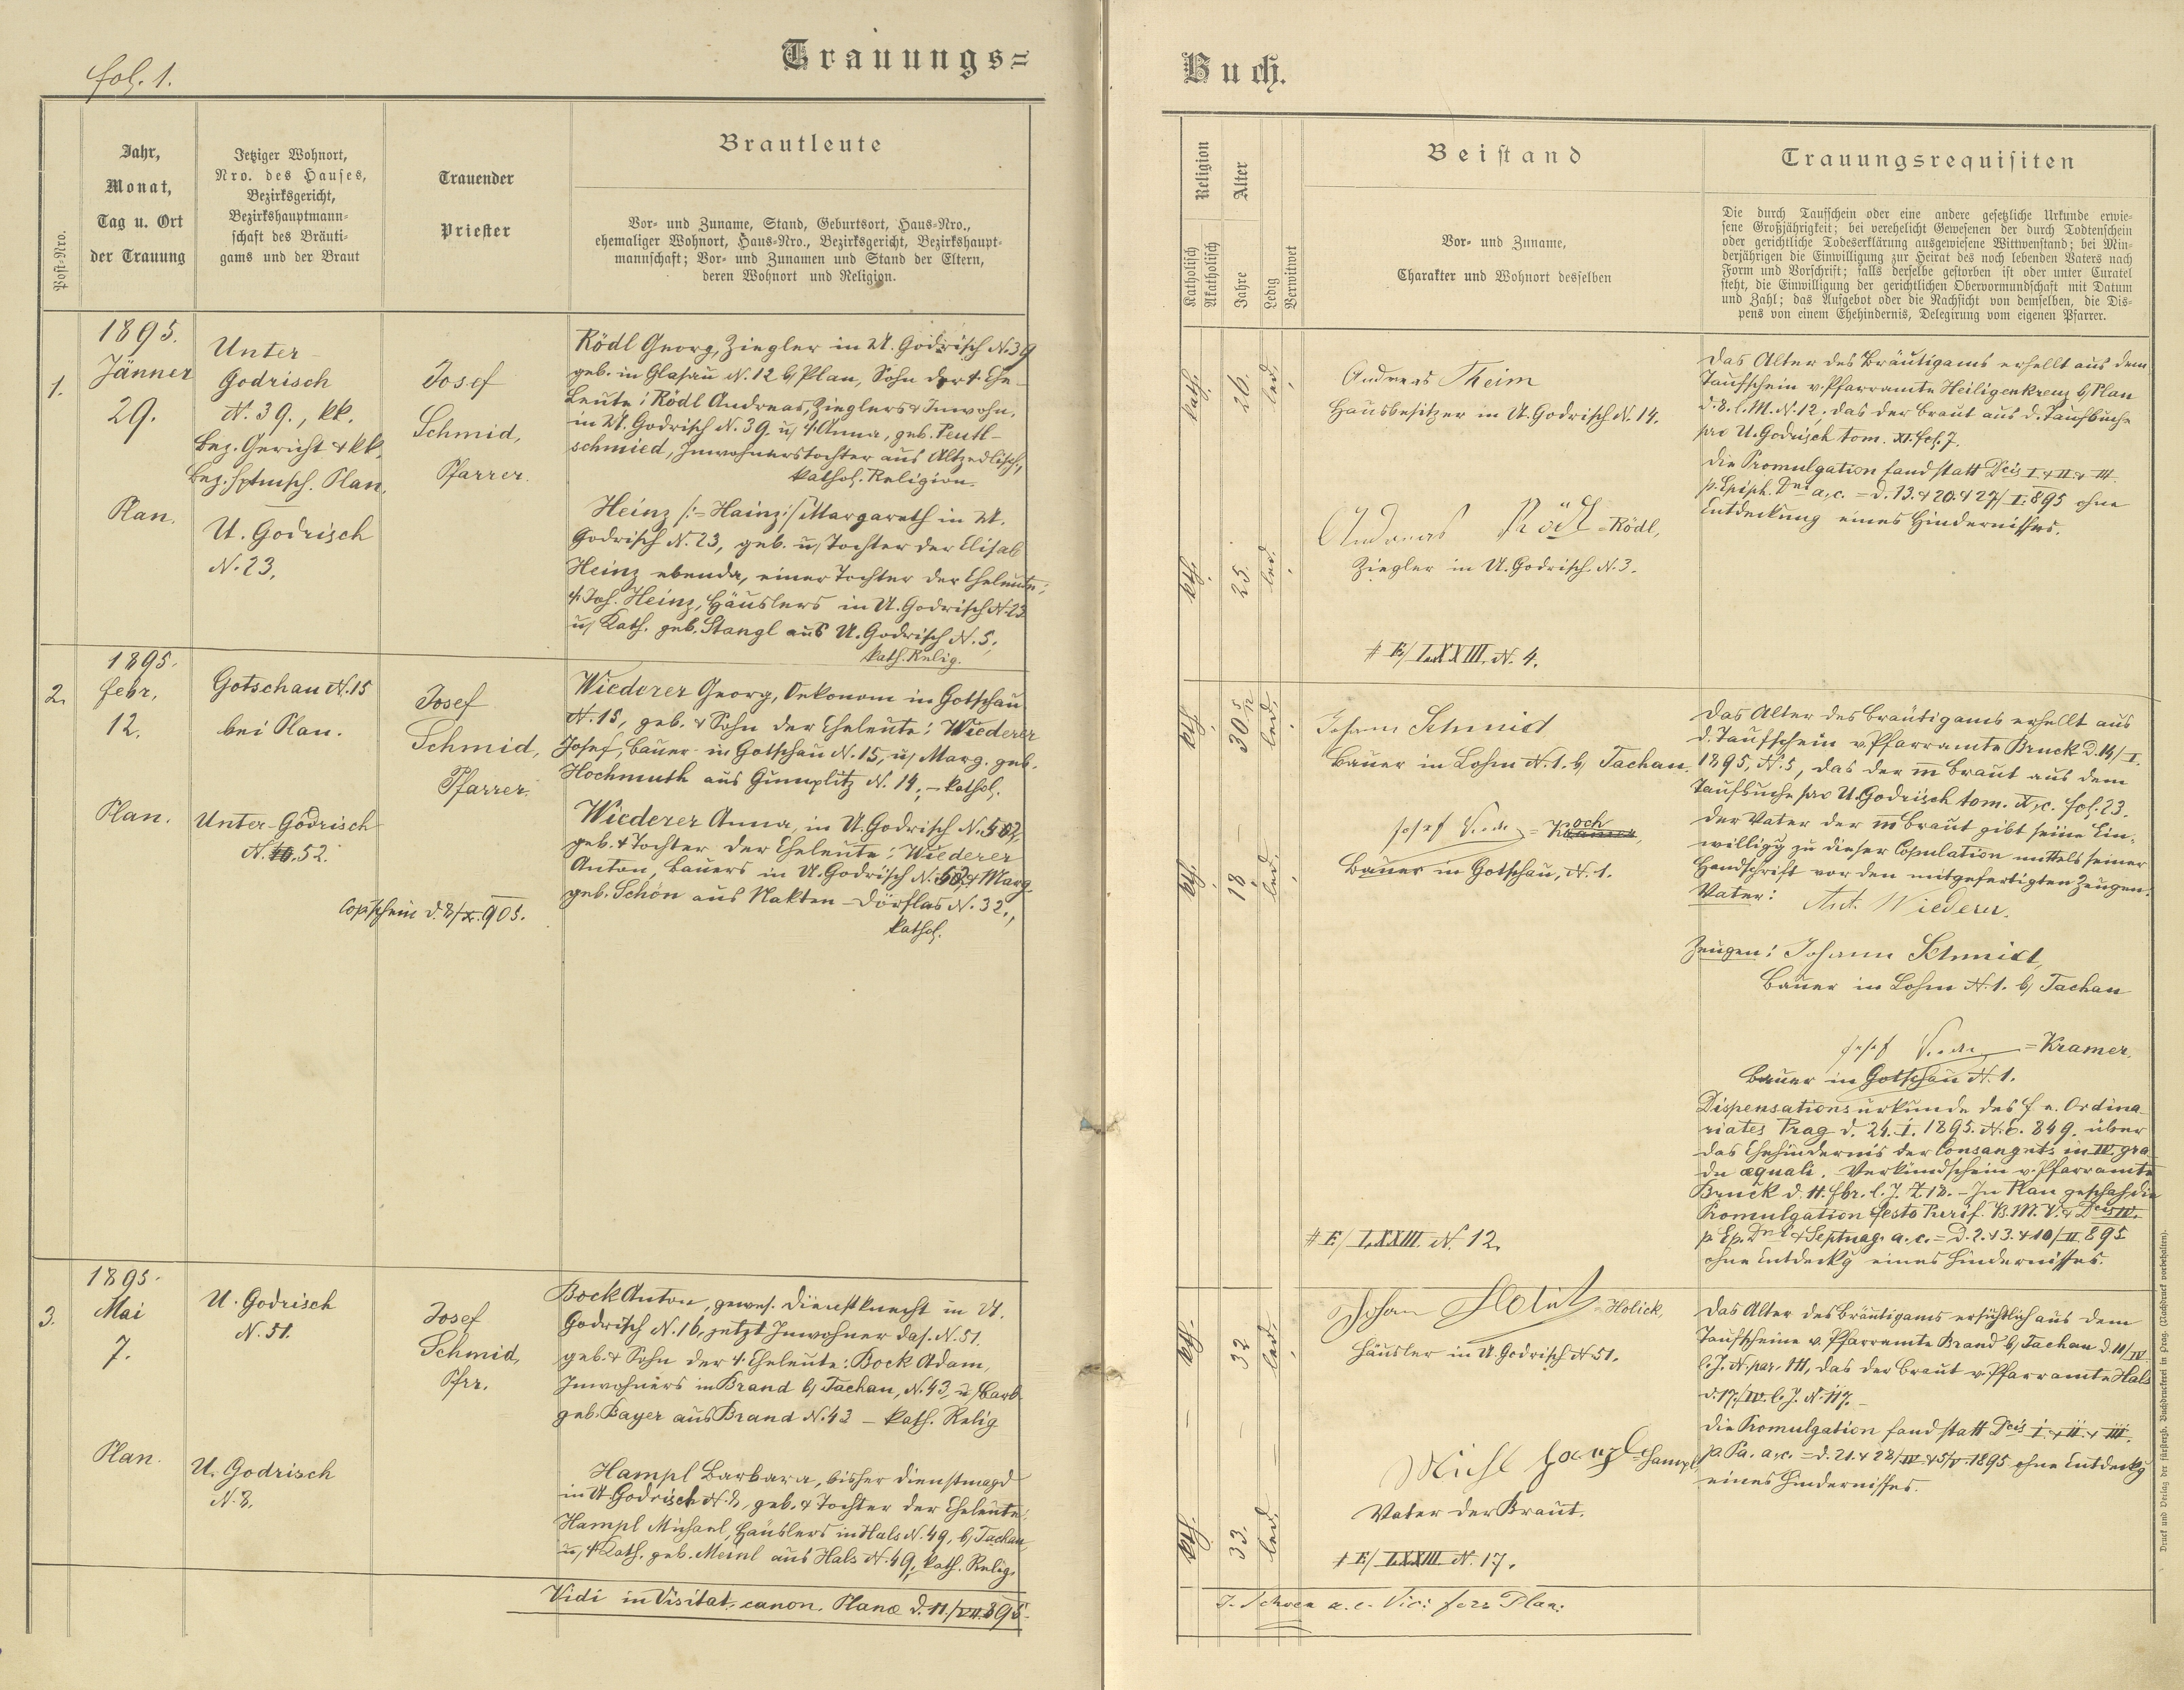 fol. 1.
Trauungs=
Buch.
Post=Nro.
Jahr,
Monat,
Tag u. Ort
der Trauung
Jetziger Wohnort,
Nro. des Hauses,
Bezirksgericht,
Bezirkshauptmann=
schaft des Bräuti=
gams und der Braut
Trauender
Priester
Brautleute
Vor= und Zuname, Stand, Geburtsort, Haus=Nro.,
ehemaliger Wohnort, Haus=Nro., Bezirksgericht, Bezirkshaupt=
mannschaft; Vor= und Zunamen und Stand der Eltern,
deren Wohnort und Religion.
Religion
Katholisch
Akatholisch
Alter
Jahre
Ledig
Verwitwet
Beistand
Vor= und Zuname,
Charakter und Wohnort desselben
Trauungsrequisiten
Die durch Taufschein oder eine andere gesetzliche Urkunde erwie=
sene Großjährigkeit; bei verehelicht Gewesenen der durch Todtenschein
oder gerichtliche Todeserklärung ausgewiesene Wittwenstand; bei Min=
derjährigen die Einwilligung zur Heirat des noch lebenden Vaters nach
Form und Vorschrift; falls derselbe gestorben ist oder unter Curatel
steht, die Einwilligung der gerichtlichen Obervormundschaft mit Datum
und Zahl; das Aufgebot oder die Nachsicht von demselben, die Dis=
pens von einem Ehehindernis, Delegirung vom eigenen Pfarrer.
1.
1895.
Jänner
29.
Plan.
Unter-
Godrisch
N. 39., kk.
Bez. Gericht & kk.
Bez. Hptmsch. Plan.
U. Godrisch
N. 23.
Josef
Schmid,
Pfarrer.
Rödl Georg, Ziegler in U. Godrisch N. 39
geb. in Glasau N. 12 b/ Plan, Sohn der †. Ehe-
leute: Rödl Andreas, Zieglers & Inwohn.
in U. Godrisch N. 39. u/ †. Anna, geb. Peutl-
schmied, Inwohnerstochter aus Altzedlisch,
kathol. Religion.
Heinz /:=Hainz:/ Margareth in U.
Godrisch N. 23, geb. u/ Tochter der Elisab
Heinz ebenda, einer Tochter der Eheleute:
†. Joh. Heinz, Häuslers in U. Godrisch N. 23
u/ Kath. geb. Stangl aus U. Godrisch N. 5,
kath. Relig.
kath.
26.
led.
kath.
25.
led.
Andreas Theim
Hausbesitzer in U. Godrisch N. 14.
Andreas Rödl =Rödl,
Ziegler in U. Godrisch N. 3.
# E/ LXXIII. N. 4.
Das Alter des Bräutigams erhellt aus dem
Taufschein v. Pfarramte Heiligenkreuz b/ Plan
d. 8. l. M. N. 12, das der Braut aus d. Taufbuche
pro U. Godrisch tom. XI. fol. 7.
Die Promulgation fand statt Dcis I. & II. & III.
p. Epiph. Dni a. c. = d. 13. & 20. & 27/ I. 895 ohne
Entdeckung eines Hindernisses.
2.
1895.
Febr.
12.
Plan.
Gotschau N. 15
bei Plan.
Unter-Godrisch
N. 52.
Cop'schein d. 8/X. 905.
Josef
Schmid,
Pfarrer.
Wiederer Georg, Oekonom in Gotschau
N. 15, geb. & Sohn der Eheleute: Wiederer
Josef, Bauer in Gotschau N. 15, u/ Marg. geb.
Hochmuth aus Gumplitz N. 14, – kathol.
Wiederer Anna, in U. Godrisch N. 52,
geb. & Tochter der Eheleute: Wiederer
Anton, Bauers in U. Godrisch N. 52, & Marg.
geb. Schön aus Nakten-Dörflas N. 32,,
kathol.
kath.
30
led.
kath.
18
led.
Johann Schmidt
Bauer in Lohm N. 1. b/ Tachau.
Josef
Bauer in Gotschau, N. 1.
# E/ LXXIII. N. 12.
Das Alter des Bräutigams erhellt aus
d. Taufschein v. Pfarramte Bruck d. 14/I.
1895, N. 5, das der m Braut aus dem
Taufbuche pro U. Godrisch tom. X, c. fol. 23.
Der Vater der m Braut gibt seine Ein-
willigg zu dieser Copulation mittels seiner
Handschrift vor den mitgefertigten Zeugen.
Vater: Ant. Wiederer.
Zeugen: Johann Schmidt,
Bauer in Lohm N. 1. b/ Tachau
Josef =Kramer,
Bauer in Gotschau N. 1.
Dispensationsurkunde des f. e. Ordina-
riates Prag d. 24. I. 1895. N. E. 849. über
das Ehehindernis der Consangnts in IV. gra
du æquali. Verkündschein v. Pfarramte
Bruck d. 11. Fbr. l. J. Z. 18. – In Plan geschah die
Promulgation festo Purif. B. M. V. & Dcis IV.
p. Ep. Dni & Septuag. a. c. = d. 2. & 3. & 10/ II. 895
ohne Entdeckg eines Hindernisses.
3.
1895.
Mai
7.
Plan.
U. Godrisch
N. 51.
U. Godrisch
N. 8.
Josef
Schmid,
Pfrr.
Bock Anton, gewes. Dienstknecht in U.
Godrisch N. 16, jetzt Inwohner das. N. 51.
geb. & Sohn der †. Eheleute: Bock Adam,
Inwohners in Brand b/ Tachau, N. 43, u/ Barb.
geb. Bayer aus Brand N. 43 – kath. Relig
Hampl Barbara, bisher Dienstmagd
in U Godrisch N. 8, geb. & Tochter der Eheleute:
Hampl Michael, Häuslers in Hals N. 49, b/ Tachau
u/ †. Kath. geb. Meinl aus Hals N. 49, kath. Relig.
kath.
32
led.
kath.
33.
led.
Johan Holik =Holick,
Häusler in U. Godrisch N. 51.
Michl Hampl =Hampl
Vater der Braut.
# E/ LXXIII N. 17.
Das Alter des Bräutigams ersichtlich aus dem
Taufscheine v. Pfarramte Brand b/ Tachau d. 11/IV.
l. J. N. par. 111, das der Braut v. Pfarramte Hals
d. 17/IV. l. J. N. 117. –
Die Promulgation fand statt Dcis I. & II. & III.
p. Pa. a. c. = d. 21. & 28/IV. & 5/V. 1895 ohne Entdeckg
eines Hindernisses.
Vidi in Visitat. canon. Planæ d. 11./VII. 895.
Druck und Verlag der fürsterzb. Buchdruckerei in Prag. (Nachdruck vorbehalten).